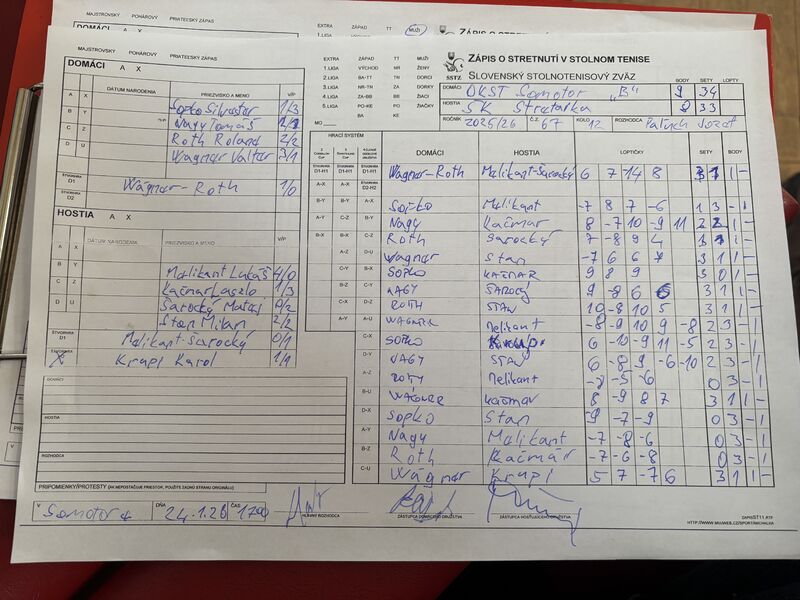 MAJSTROVSKÝ POHÁROVÝ PRIATEĽSKÝ ZÁPAS
DOMÁCI A X
DÁTUM NARODENIA PRIEZVISKO A MENO V/P
A X Sopko Silvester 1/3
B Y Nagy Tomáš
C Z Roth Roland 2/2
D U Wagner Valter 3/1
ŠTVORHRA D1 Wágnar-Roth 1/0
D2
HOSTIA A X
DÁTUM NARODENIA PRIEZVISKO A MENO V/P
A X
B Y Malikant Lukáš 4/0
C Z Kačmar Laszlo 1/3
D U Šarocký Matej 0/2
Stan Milan 2/2
ŠTVORHRA D1 Malikant-Šarocký 0/1
X Krupi Karol 1/1
DOMÁCI
HOSTIA
ROZHODCA
PRIPOMIENKY/PROTESTY (AK NEPOSTAČUJE PRIESTOR, POUŽITE ZADNÚ STRANU ORIGINÁLU)
V Somotor DŇA 24.1.26 ČAS 1700
HLAVNÝ ROZHODCA
ZÁSTUPCA DOMÁCEHO DRUŽSTVA
ZÁSTUPCA HOSŤUJÚCEHO DRUŽSTVA
EXTRA ZÁPAD TT MUŽI
1.LIGA VÝCHOD NR ŽENY
2.LIGA BA-TT TN DORCI
3.LIGA NR-TN ZA DORKY
4.LIGA ZA-BB BB ŽIACI
5.LIGA PO-KE PO ŽIAČKY
BA KE
MO
SSTZ
ZÁPIS O STRETNUTÍ V STOLNOM TENISE
SLOVENSKÝ STOLNOTENISOVÝ ZVÄZ
BODY SETY LOPTY
DOMÁCI OKST Somotor "B" 9 34
HOSTIA SK Stretavka 9 33
ROČNÍK 2025/26 Č.Z. 67 KOLO 12 ROZHODCA Paľuch Jozef
HRACÍ SYSTÉM
DOMÁCI HOSTIA LOPTIČKY SETY BODY
Wágnar-Roth Malikant-Šarocký 6 7 14 8
Sopko Malikant -7 8 7 -6 1 3 - 1
Nagy Kačmar 8 -7 10 -9 11
Roth Šarocký 7 -8 9 4
Wagnar Stan -7 6 6 3 1 1 -
SOPKO KAČMAR 9 8 9 3 0 1 -
NAGY ŠAROCÝ 9 -8 6 6 3 1 1 -
ROTH STAN 10 -8 10 5 3 1 1 -
WAGNER Melikant -8 -9 10 9 -8 2 3 - 1
SOPKO 6 -10 -9 11 -5 2 3 - 1
NAGY STAN 6 -8 9 -6 -10 2 3 - 1
ROTH Melikant -5 -6 0 3 - 1
WÁGNER KAČMAR 8 -9 8 7 3 1 1 -
SOPKO Stan -9 -7 -9 0 3 - 1
Nagy Malikant -7 -8 -6 0 3 - 1
Roth Kačmár -7 -6 -8 0 3 - 1
Wágnar Krupi 5 7 -7 6 3 1 1 -
ZAPISST11.RTF
HTTP://WWW.MUJWEB.CZ/SPORT/MICHALKA